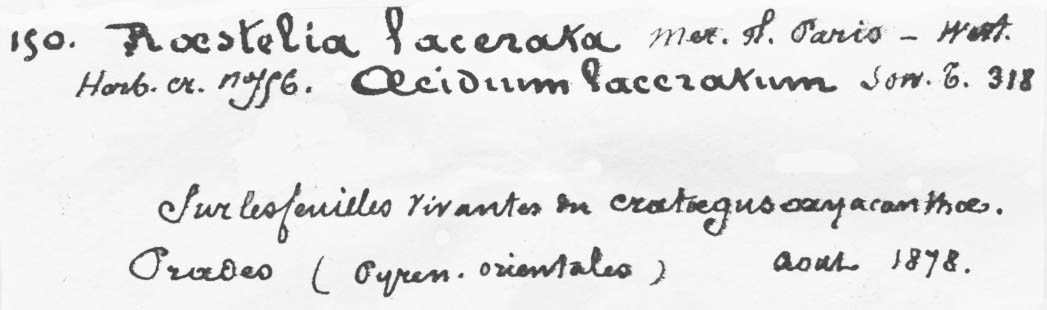 150. Rœstelia lacerata Mer. fl. Paris – West.
Herb. cr. nº 556. Œcidium laceratum Sow. t. 318
Sur les feuilles vivantes du cratægus oxyacanthæ.
Prades (Pyren. orientales) aout 1878.